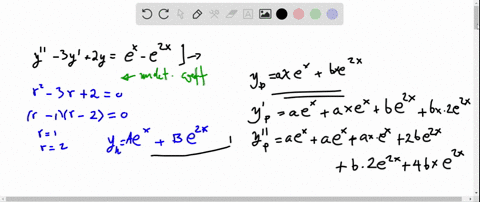 y'' - 3y' + 2y = eˣ - e²ˣ ] →
← undet. coeff
r² - 3r + 2 = 0
(r - 1)(r - 2) = 0
r = 1
r = 2
y_h = Aeˣ + Be²ˣ
y_p = axeˣ + bxe²ˣ
y'_p = aeˣ + axeˣ + be²ˣ + bx·2e²ˣ
y''_p = aeˣ + aeˣ + ax·eˣ + 2be²ˣ
+ b·2e²ˣ + 4bxe²ˣ